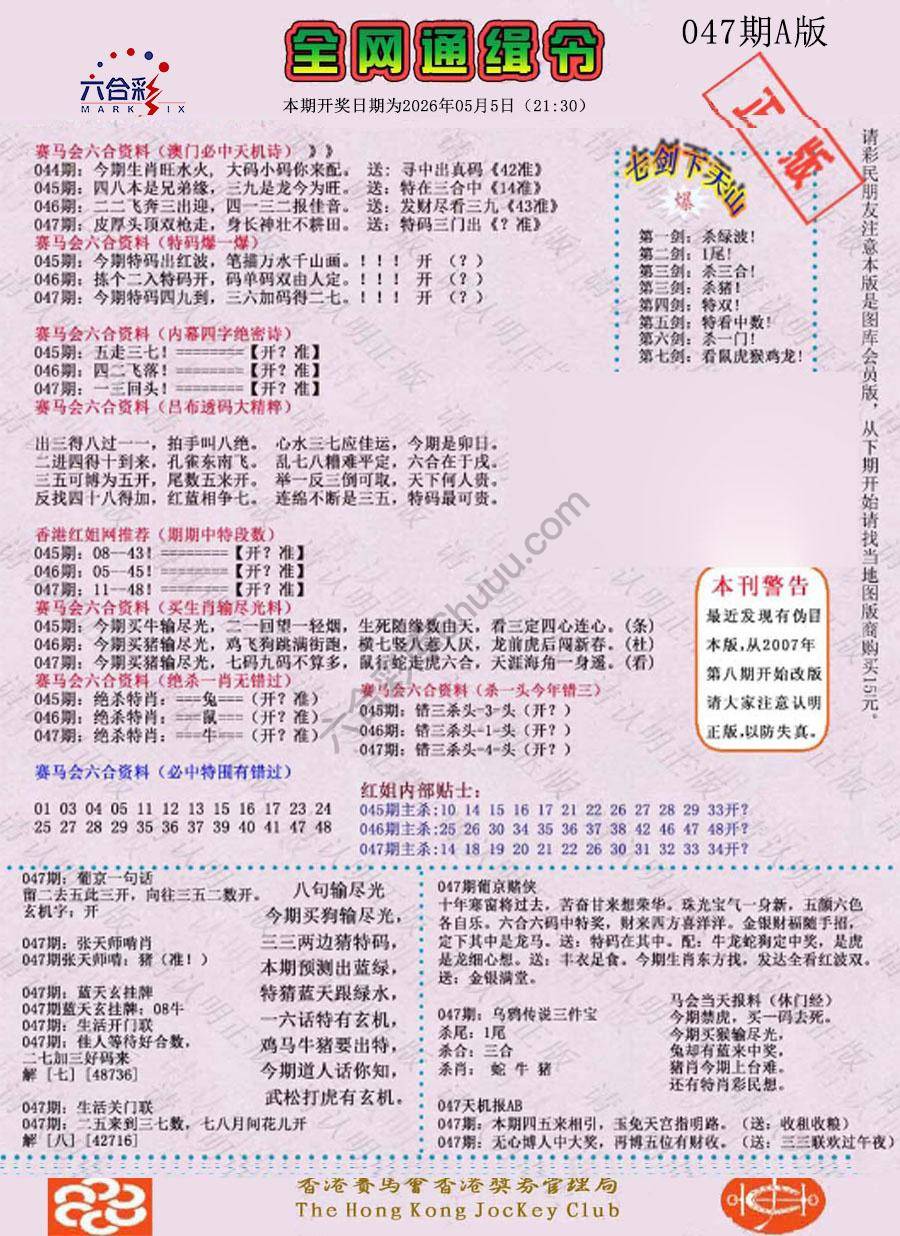 047期A版
全网通缉令
六合彩
MARK SIX
本期开奖日期为2026年05月5日（21:30）
正版
赛马会六合资料（澳门必中天机诗）》》
044期：今期生肖旺水火，大码小码你来配。 送：寻中出真码《42准》
045期：四八本是兄弟缘，三九是龙今为旺。 送：特在三合中《14准》
046期：二二飞奔三出迎，四一三二报佳音。 送：发财尽看三九《43准》
047期：皮厚头顶双枪走，身长神壮不耕田。 送：特码三门出《？准》
赛马会六合资料（特码爆一爆）
045期：今期特码出红波，笔描万水千山画。！！！ 开（？）
046期：拣个二入特码开，码单码双由人定。！！！ 开（？）
047期：今期特码四九到，三六加码得二七。！！！ 开（？）
赛马会六合资料（内幕四字绝密诗）
045期：五走三七！========【开？准】
046期：四二飞落！========【开？准】
047期：一三回头！========【开？准】
赛马会六合资料（吕布透码大精粹）
出三得八过一一，拍手叫八绝。 心水三七应佳运，今期是卯日。
二进四得十到来，孔雀东南飞。 乱七八糟难平定，六合在于戌。
三五可博为五开，尾数五来开。 举一反三倒可取，天下何人贵。
反找四十八得加，红蓝相争七。 连绵不断是三五，特码最可贵。
香港红姐网推荐（期期中特段数）
045期：08--43！========【开？准】
046期：05--45！========【开？准】
047期：11--48！========【开？准】
赛马会六合资料（买生肖输尽光料）
045期：今期买牛输尽光，二一回望一轻烟，生死随缘数由天，看三定四心连心。(条)
046期：今期买猪输尽光，鸡飞狗跳满街跑，横七竖八惹人厌，龙前虎后闯新春。(杜)
047期：今期买猪输尽光，七码九码不算多，鼠行蛇走虎六合，天涯海角一身遥。(看)
赛马会六合资料（绝杀一肖无错过）
045期：绝杀特肖：===兔===（开？准）
046期：绝杀特肖：===鼠===（开？准）
047期：绝杀特肖：===牛===（开？准）
赛马会六合资料（杀一头今年错三）
045期：错三杀头-3-头（开？）
046期：错三杀头-1-头（开？）
047期：错三杀头-4-头（开？）
赛马会六合资料（必中特围有错过）
01 03 04 05 11 12 12 13 15 16 17 23 24
25 27 28 29 35 36 37 39 40 41 47 48
红姐内部贴士：
045期主杀:10 14 15 16 17 21 22 26 27 28 29 33开?
046期主杀:25 26 30 34 35 36 37 38 42 46 47 48开?
047期主杀:14 18 19 20 21 22 26 30 31 32 33 34开?
七剑下天山
爆
第一剑：杀绿波！
第二剑：1尾！
第三剑：杀三合！
第三剑：杀猪！
第四剑：特双！
第五剑：特看中数！
第六剑：杀一门！
第七剑：看鼠虎猴鸡龙！
请彩民朋友注意本版是图库会员版，从下期开始请找当地图版商购买15元。
本刊警告
最近发现有伪冒
本版,从2007年
第八期开始改版
请大家注意认明
正版,以防失真。
六合彩大全chuuu.com
047期：葡京一句话
留二去五此三开，向往三五二数开。
玄机字：开
047期：张天师啃肖
047期张天师啃：猪（准！）
047期：蓝天玄挂牌
047期蓝天玄挂牌：08牛
047期：生活开门联
047期：佳人等待好合数，
二七加三好码来
解 [七] [48736]
047期：生活关门联
047期：二五来到三七数，七八月间花儿开
解 [八] [42716]
八句输尽光
今期买狗输尽光，
三三两边猜特码，
本期预测出蓝绿，
特猜蓝天跟绿水，
一六话特有玄机，
鸡马牛猪要出特，
今期道人话你知，
武松打虎有玄机。
047期葡京赌侠
十年寒窗将过去，苦奋甘来想荣华。珠光宝气一身新，五颜六色
各自乐。六合六码中特奖，财来四方喜洋洋。金银财福随手招，
定下其中是龙马。送：特码在其中。配：牛龙蛇狗定中奖，是虎
是龙细心想。送：丰衣足食。今期生肖东方找，发达全看红波双。
送：金银满堂。
047期：乌鸦传说三件宝
杀尾：1尾
杀合：三合
杀肖： 蛇 牛 猪
马会当天报料（休门经）
今期禁虎，买一码去死。
今期买猴输尽光，
兔却有蓝来中奖，
猪肖今期上台难。
还有特肖彩民想。
047天机报AB
047期：本期四五来相引，玉兔天宫指明路。（送：收租收粮）
047期：无心博人中大奖，再博五位有财收。（送：三三联欢过午夜）
香港賽馬會香港獎券管理局
The Hong Kong JocKey Club